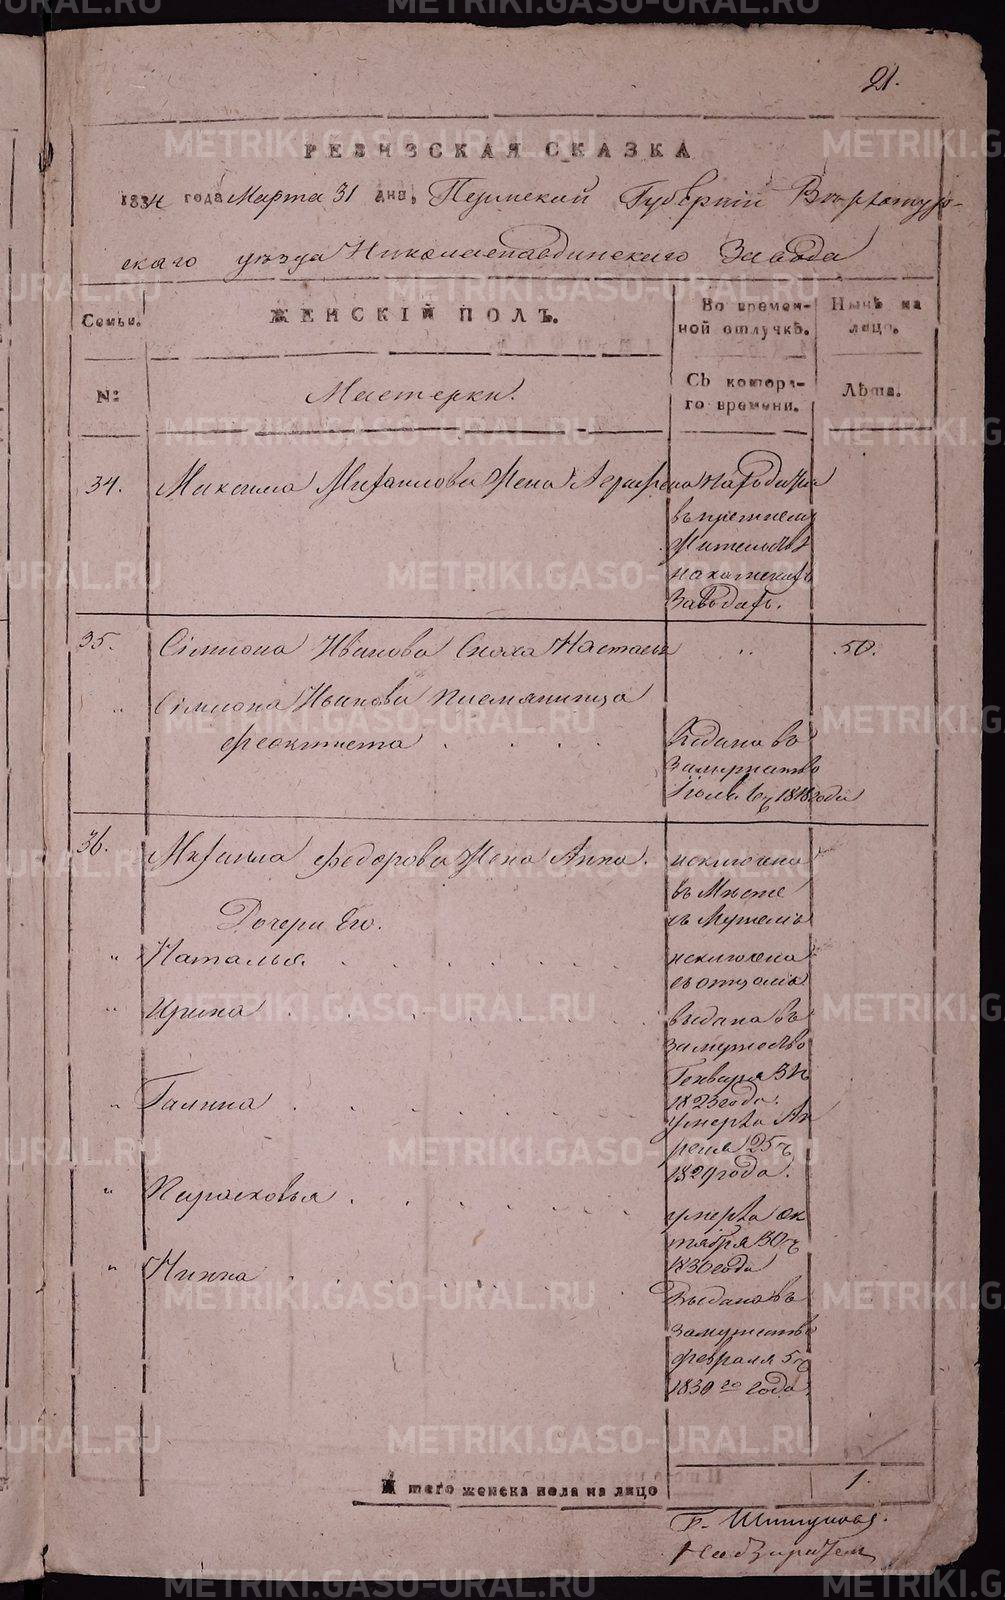 21.
РЕВИЗСКАЯ СКАЗКА
1834 года Марта 31 дня, Пермской Губернии Верхотур-
скаго уезда Николаепавдинскаго Завода
Семьи.
ЖЕНСКІЙ ПОЛЪ.
Во времен-
ной отлучкѣ.
Нынѣ на
лицо.
№
Мастерки.
Съ котора-
го времени.
Лѣта.
34. Максима Михаилова Жена Аграфена находится
въ прежнемъ
Жительствѣ
Заводахъ.
35. Симиона Иванова Сноха Настасья " 50.
" Симиона Иванова племянница
Феоктиста . . . . Выдана въ
Замужство
1818 года
36. Михаила Федорова Жена Анна. исключена
въ Месте
съ Мужемъ
Дочери Его.
" Наталья . . . . . . исключена
съ отцомъ
" Ирина . . . . . . . выдана въ
замужство
Генваря 3ч
1823 года.
" Галина . . . . . . . умерла Ап
реля 25ч
1829 года.
" Парасковья . . . . . . умерла Ок
тября 30ч
1830 года
" Нина . . . . . . Выдана въ
замужство
февраля 5ч
1830го года.
Итого женска пола на лицо 1.
Надзиратель
METRIKI.GASO-URAL.RU